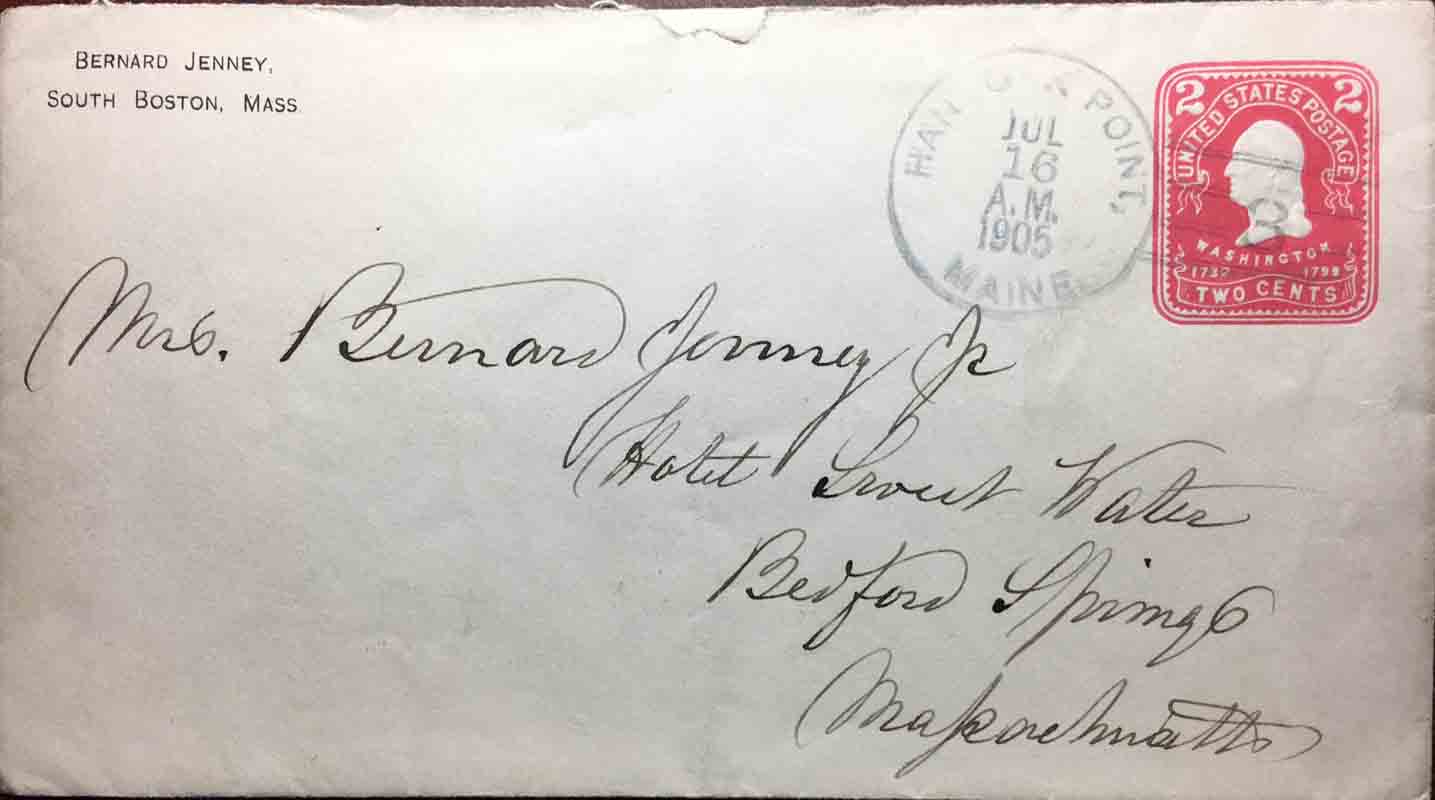 BERNARD JENNEY,
SOUTH BOSTON, MASS
POINT,
JUL
16
A.M.
1905
MAINE
2 2
UNITED STATES POSTAGE
WASHINGTON
1732 1799
TWO CENTS
Mrs. Bernard Jenney Jr
Hotel Sweet Water
Bedford Springs
Massachusetts